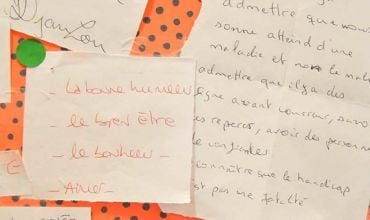 Djanlou
- La bonne humeur
- le bien être
- le bonheur -
- Aimer -
admettre que vous
sonne atteind d'une
maladie et non le mala
admettre que il y a des
ligne avant courreur, savo
les reperer, avoir des personne
de confiantes
connaître que le handicap
est pas une fatalité
E